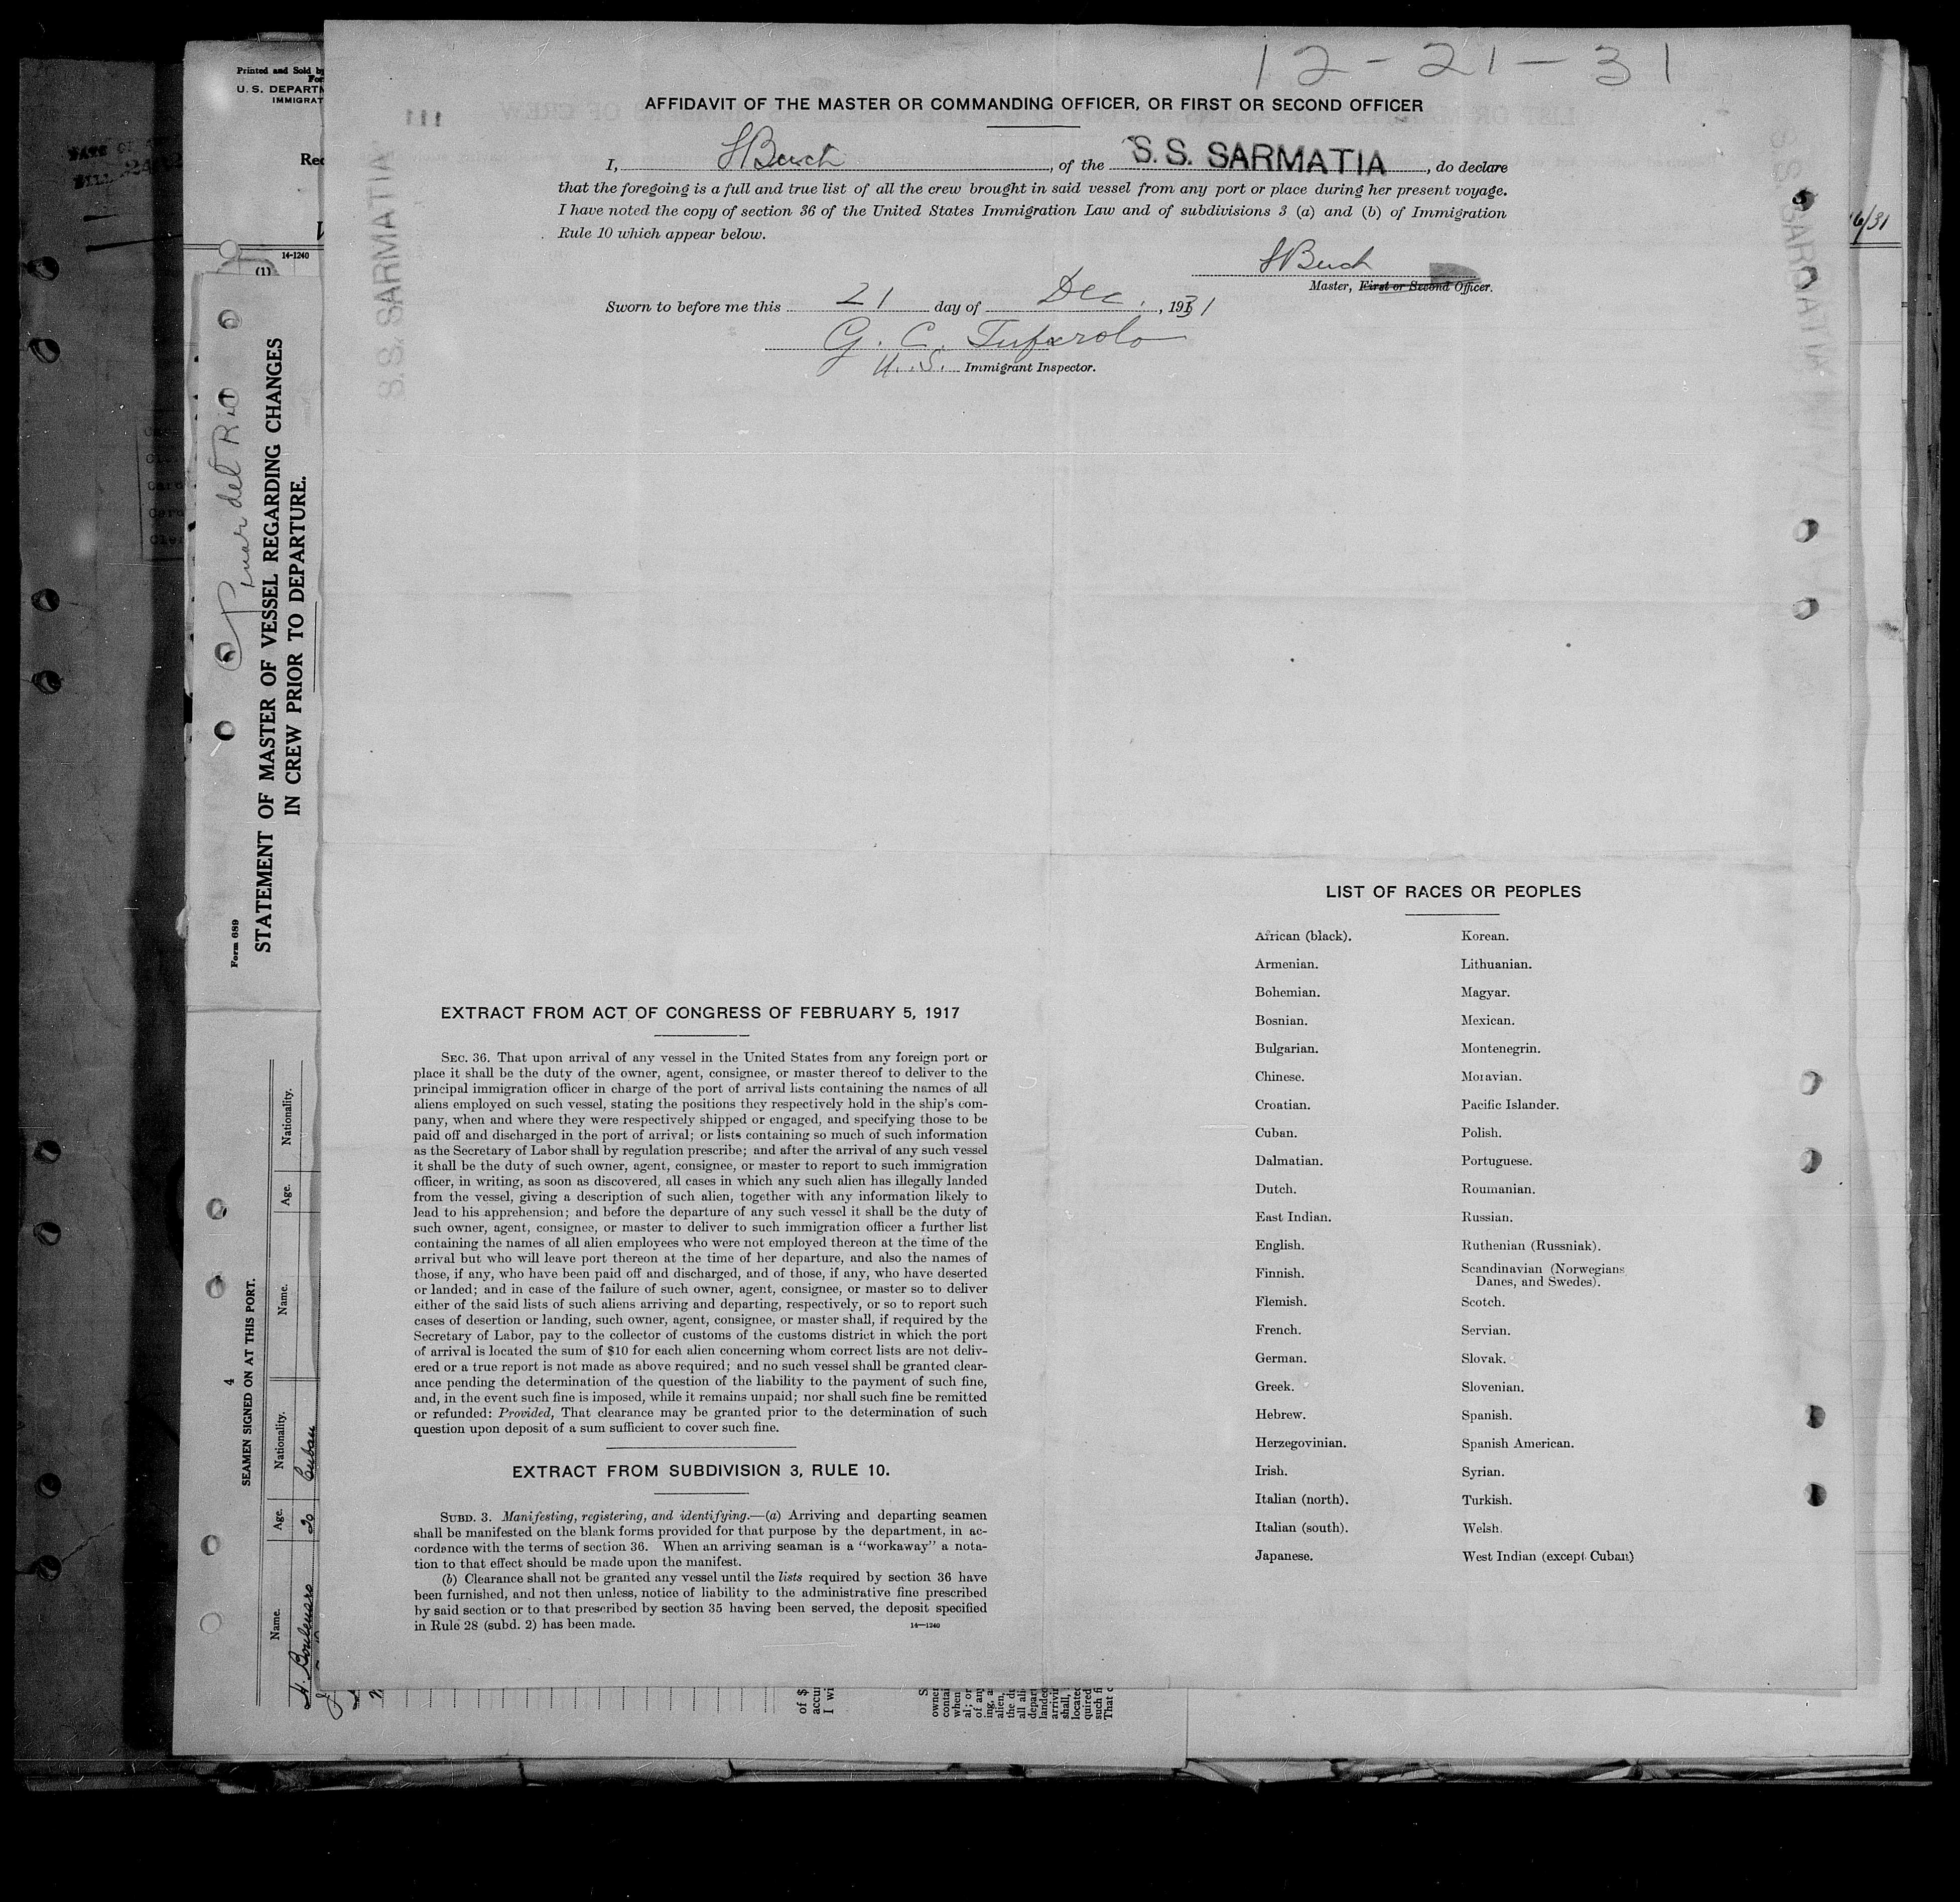 12-21-31
AFFIDAVIT OF THE MASTER OR COMMANDING OFFICER, OR FIRST OR SECOND OFFICER
111
I, of the S. S. SARMATIA, do declare
that the foregoing is a full and true list of all the crew brought in said vessel from any port or place during her present voyage.
I have noted the copy of section 36 of the United States Immigration Law and of subdivisions 3 (a) and (b) of Immigration
Rule 10 which appear below.
Master, First or Second Officer.
Sworn to before me this 21 day of Dec., 1931
G. C.
U. S. Immigrant Inspector.
S. S. SARMATIA
EXTRACT FROM ACT OF CONGRESS OF FEBRUARY 5, 1917
SEC. 36. That upon arrival of any vessel in the United States from any foreign port or
place it shall be the duty of the owner, agent, consignee, or master thereof to deliver to the
principal immigration officer in charge of the port of arrival lists containing the names of all
aliens employed on such vessel, stating the positions they respectively hold in the ship's com-
pany, when and where they were respectively shipped or engaged, and specifying those to be
paid off and discharged in the port of arrival; or lists containing so much of such information
as the Secretary of Labor shall by regulation prescribe; and after the arrival of any such vessel
it shall be the duty of such owner, agent, consignee, or master to report to such immigration
officer, in writing, as soon as discovered, all cases in which any such alien has illegally landed
from the vessel, giving a description of such alien, together with any information likely to
lead to his apprehension; and before the departure of any such vessel it shall be the duty of
such owner, agent, consignee, or master to deliver to such immigration officer a further list
containing the names of all alien employees who were not employed thereon at the time of the
arrival but who will leave port thereon at the time of her departure, and also the names of
those, if any, who have been paid off and discharged, and of those, if any, who have deserted
or landed; and in case of the failure of such owner, agent, consignee, or master so to deliver
either of the said lists of such aliens arriving and departing, respectively, or so to report such
cases of desertion or landing, such owner, agent, consignee, or master shall, if required by the
Secretary of Labor, pay to the collector of customs of the customs district in which the port
of arrival is located the sum of $10 for each alien concerning whom correct lists are not deliv-
ered or a true report is not made as above required; and no such vessel shall be granted clear-
ance pending the determination of the question of the liability to the payment of such fine,
and, in the event such fine is imposed, while it remains unpaid; nor shall such fine be remitted
or refunded: Provided, That clearance may be granted prior to the determination of such
question upon deposit of a sum sufficient to cover such fine.
EXTRACT FROM SUBDIVISION 3, RULE 10.
SUBD. 3. Manifesting, registering, and identifying.—(a) Arriving and departing seamen
shall be manifested on the blank forms provided for that purpose by the department, in ac-
cordance with the terms of section 36. When an arriving seaman is a "workaway" a nota-
tion to that effect should be made upon the manifest.
(b) Clearance shall not be granted any vessel until the lists required by section 36 have
been furnished, and not then unless, notice of liability to the administrative fine prescribed
by said section or to that prescribed by section 35 having been served, the deposit specified
in Rule 28 (subd. 2) has been made.
14—1240
LIST OF RACES OR PEOPLES
African (black).
Armenian.
Bohemian.
Bosnian.
Bulgarian.
Chinese.
Croatian.
Cuban.
Dalmatian.
Dutch.
East Indian.
English.
Finnish.
Flemish.
French.
German.
Greek.
Hebrew.
Herzegovinian.
Irish.
Italian (north).
Italian (south).
Japanese.
Korean.
Lithuanian.
Magyar.
Mexican.
Montenegrin.
Moravian.
Pacific Islander.
Polish.
Portuguese.
Roumanian.
Russian.
Ruthenian (Russniak).
Scandinavian (Norwegians,
Danes, and Swedes).
Scotch.
Servian.
Slovak.
Slovenian.
Spanish.
Spanish American.
Syrian.
Turkish.
Welsh.
West Indian (except Cuban)
Printed and Sold by
U. S. DEPARTM
IMMIGRAT
14-1240
(1)
Form 689
STATEMENT OF MASTER OF VESSEL REGARDING CHANGES
IN CREW PRIOR TO DEPARTURE.
4
SEAMEN SIGNED ON AT THIS PORT.
Name. Age. Nationality. Name. Age. Nationality.
20 Cuban
6/31